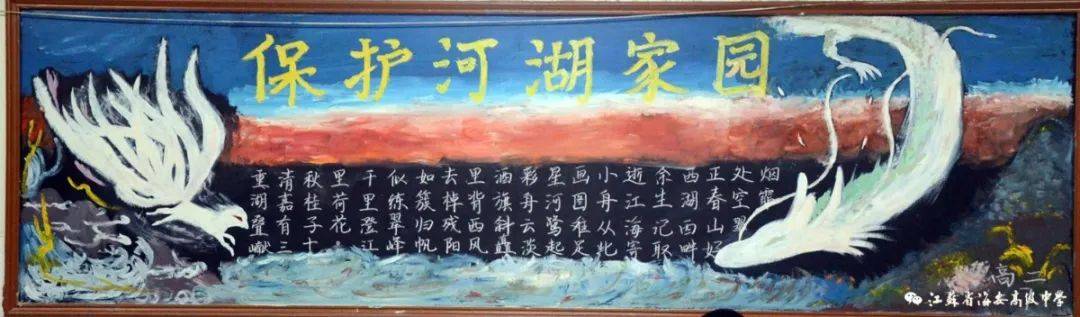 保护河湖家园
重湖叠巘
清嘉有三
秋桂子十
里荷花
千里澄江
似练翠峰
如簇归帆
去棹残阳
里背西风
酒旗斜矗
彩舟云淡
星河鹭起
画图难足
小舟从此
逝江海寄
余生记取
西湖西畔
正春山好
处空翠
烟霏
高二
江苏省海安高级中学